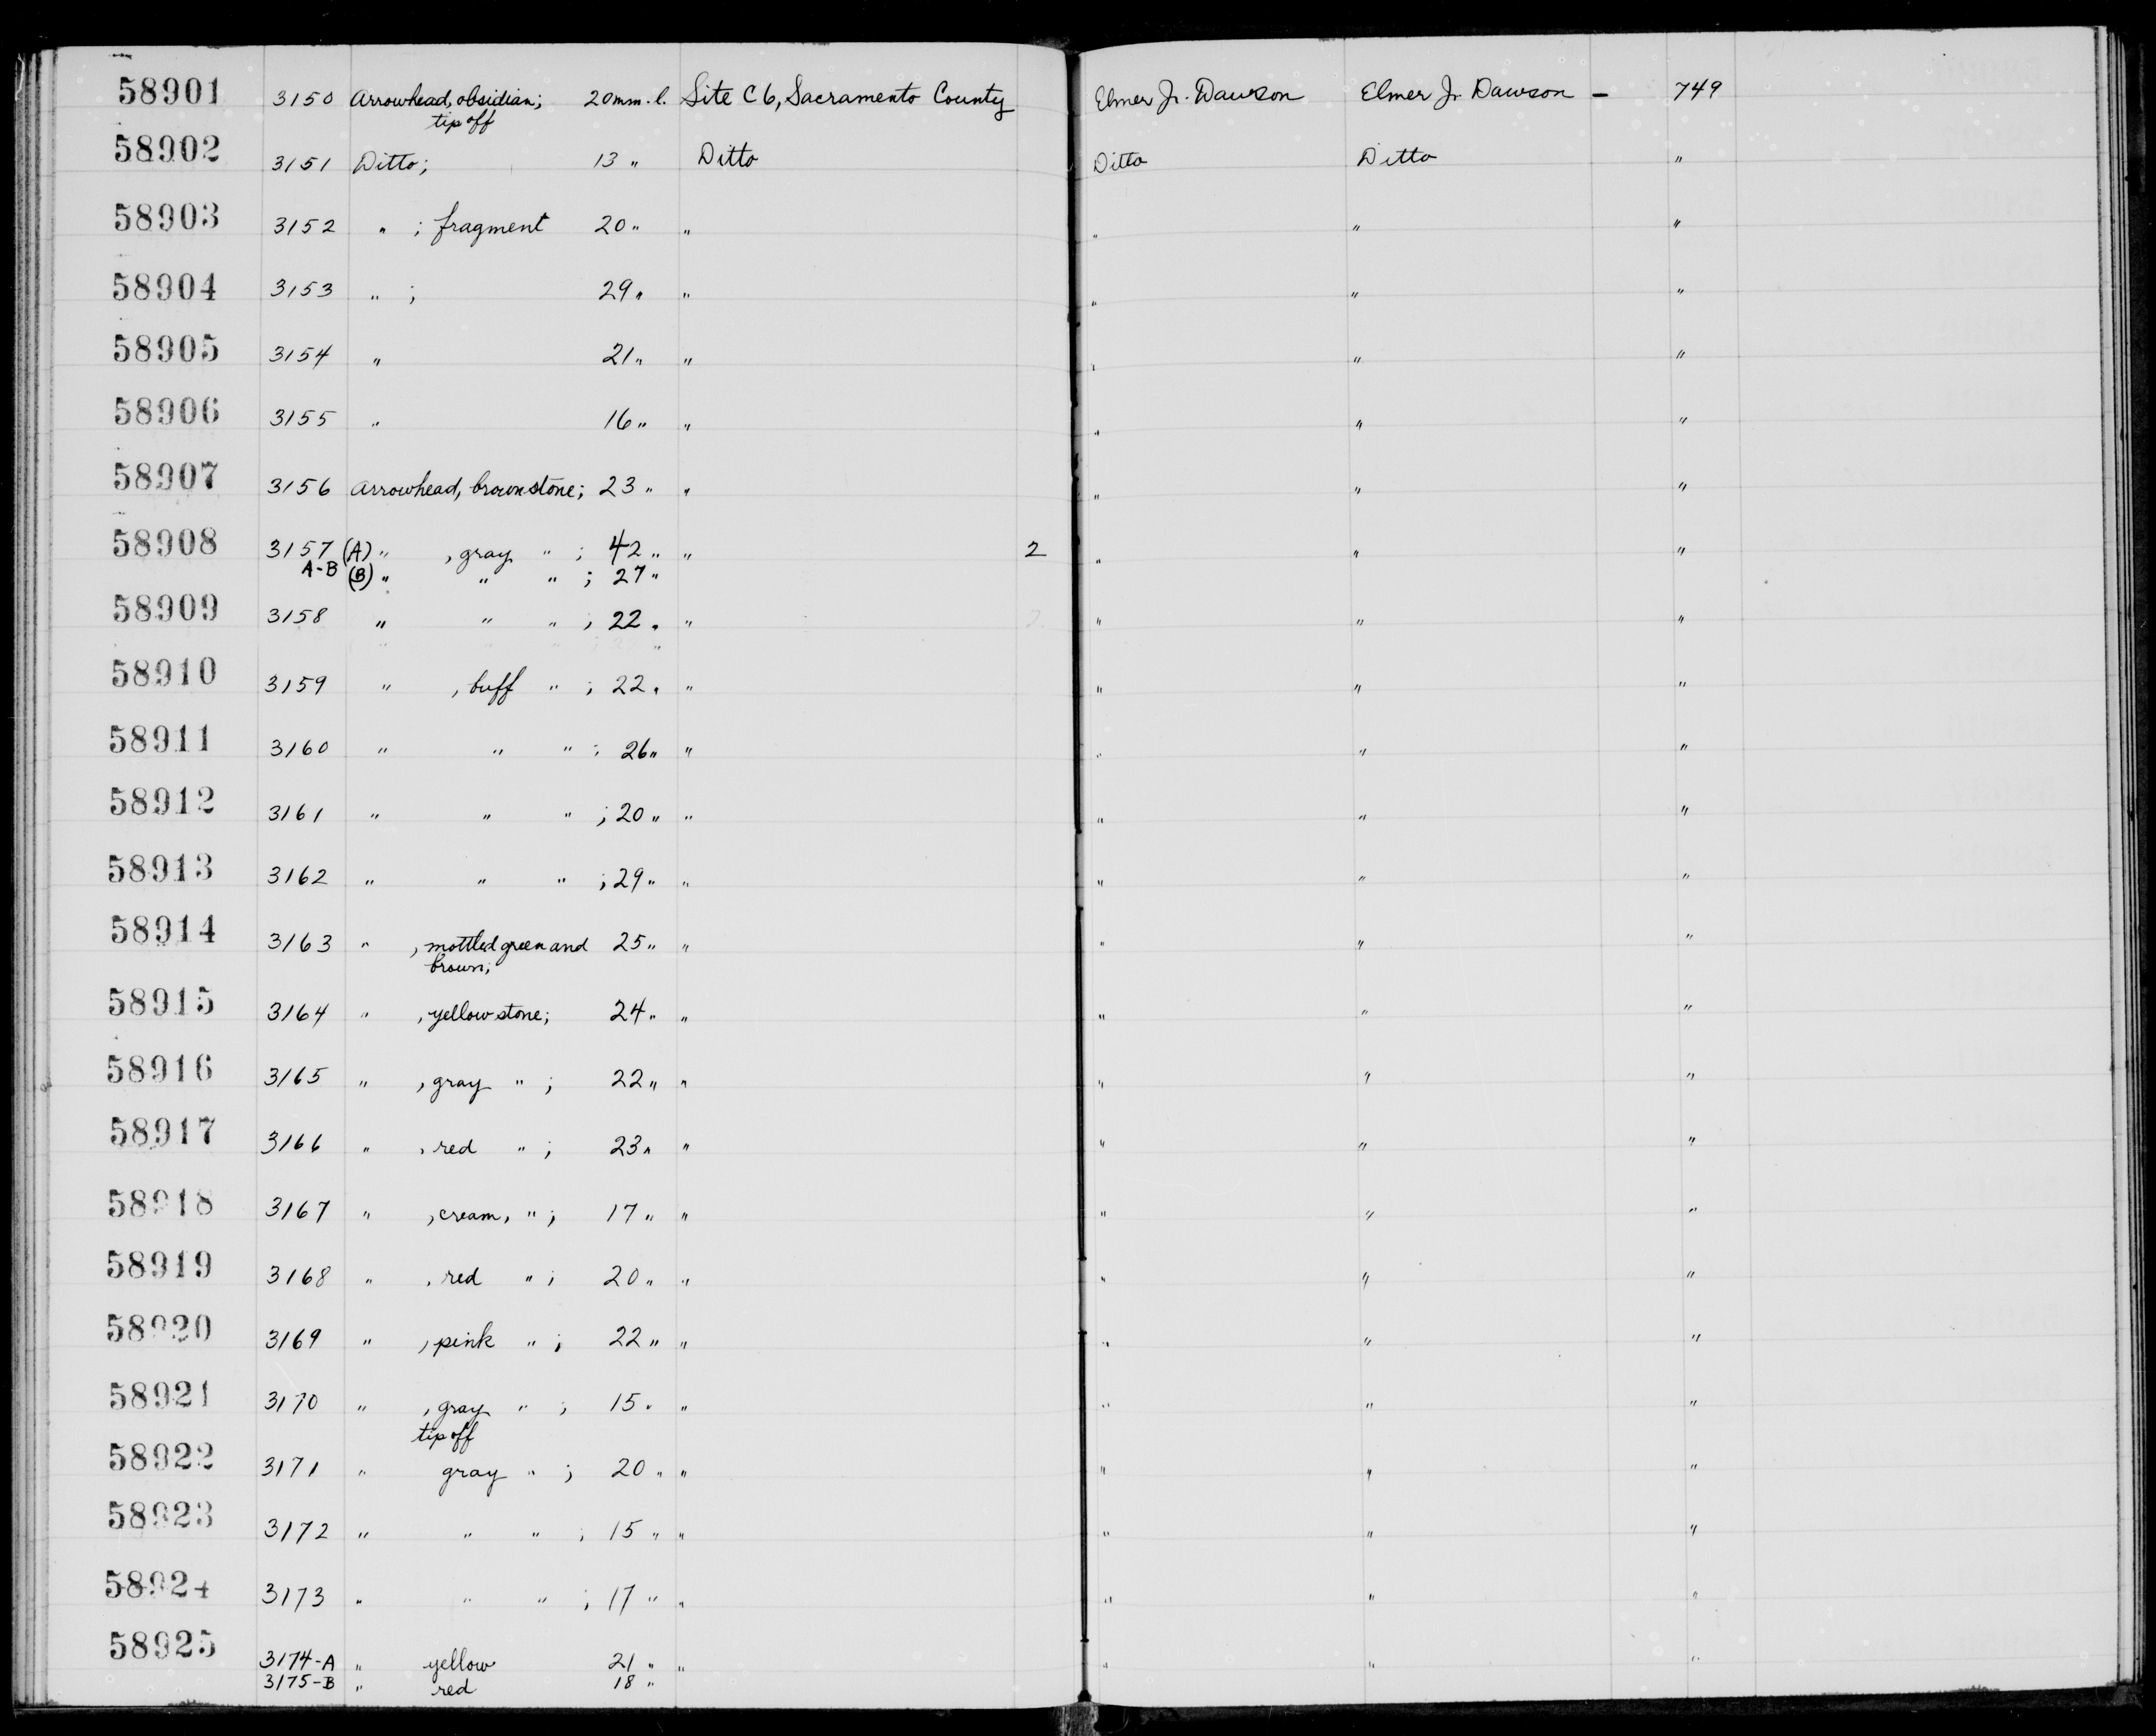 58901 3150 Arrowhead, obsidian; 20 mm. l. Site C6, Sacramento County Elmer Jr. Dawson Elmer Jr. Dawson – 749
tip off
58902 3151 Ditto; 13 " Ditto Ditto Ditto "
58903 3152 " ; fragment 20 " " " " "
58904 3153 " ; 29 " " " " "
58905 3154 " 21 " " " " "
58906 3155 " 16 " " " " "
58907 3156 Arrowhead, brown stone; 23 " " " " "
58908 3157 (A) " , gray " ; 42 " " 2 " " "
A-B (B) " " " ; 27 "
58909 3158 " " " ; 22 " " " " "
58910 3159 " , buff " ; 22 " " " " "
58911 3160 " " " ; 26 " " " " "
58912 3161 " " " ; 20 " " " " "
58913 3162 " " " ; 29 " " " " "
58914 3163 " , mottled green and 25 " " " " "
brown;
58915 3164 " , yellow stone; 24 " " " " "
58916 3165 " , gray " ; 22 " " " " "
58917 3166 " , red " ; 23 " " " " "
58918 3167 " , cream, " ; 17 " " " " "
58919 3168 " , red " ; 20 " " " " "
58920 3169 " , pink " ; 22 " " " " "
58921 3170 " , gray " ; 15 " " " " "
tip off
58922 3171 " gray " ; 20 " " " " "
58923 3172 " " " ; 15 " " " " "
58924 3173 " " " ; 17 " " " " "
58925 3174-A " yellow 21 " " " " "
3175-B " red 18 "